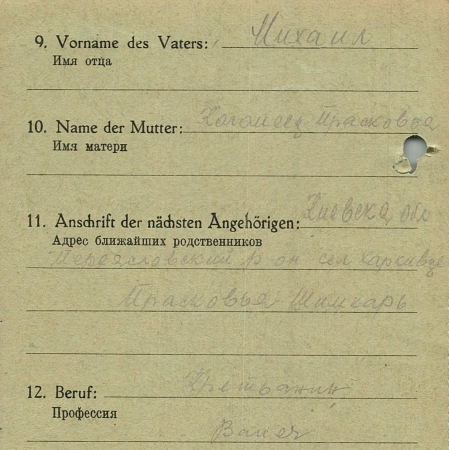 9. Vorname des Vaters: Михаил
Имя отца
10. Name der Mutter: Коломеец Прасковья
Имя матери
11. Anschrift der nächsten Angehörigen: Киевска обл
Адрес ближайших родственников
Переясловский р он сел
Прасковья Шимкарь
12. Beruf: Крестьянин
Профессия
Bauer